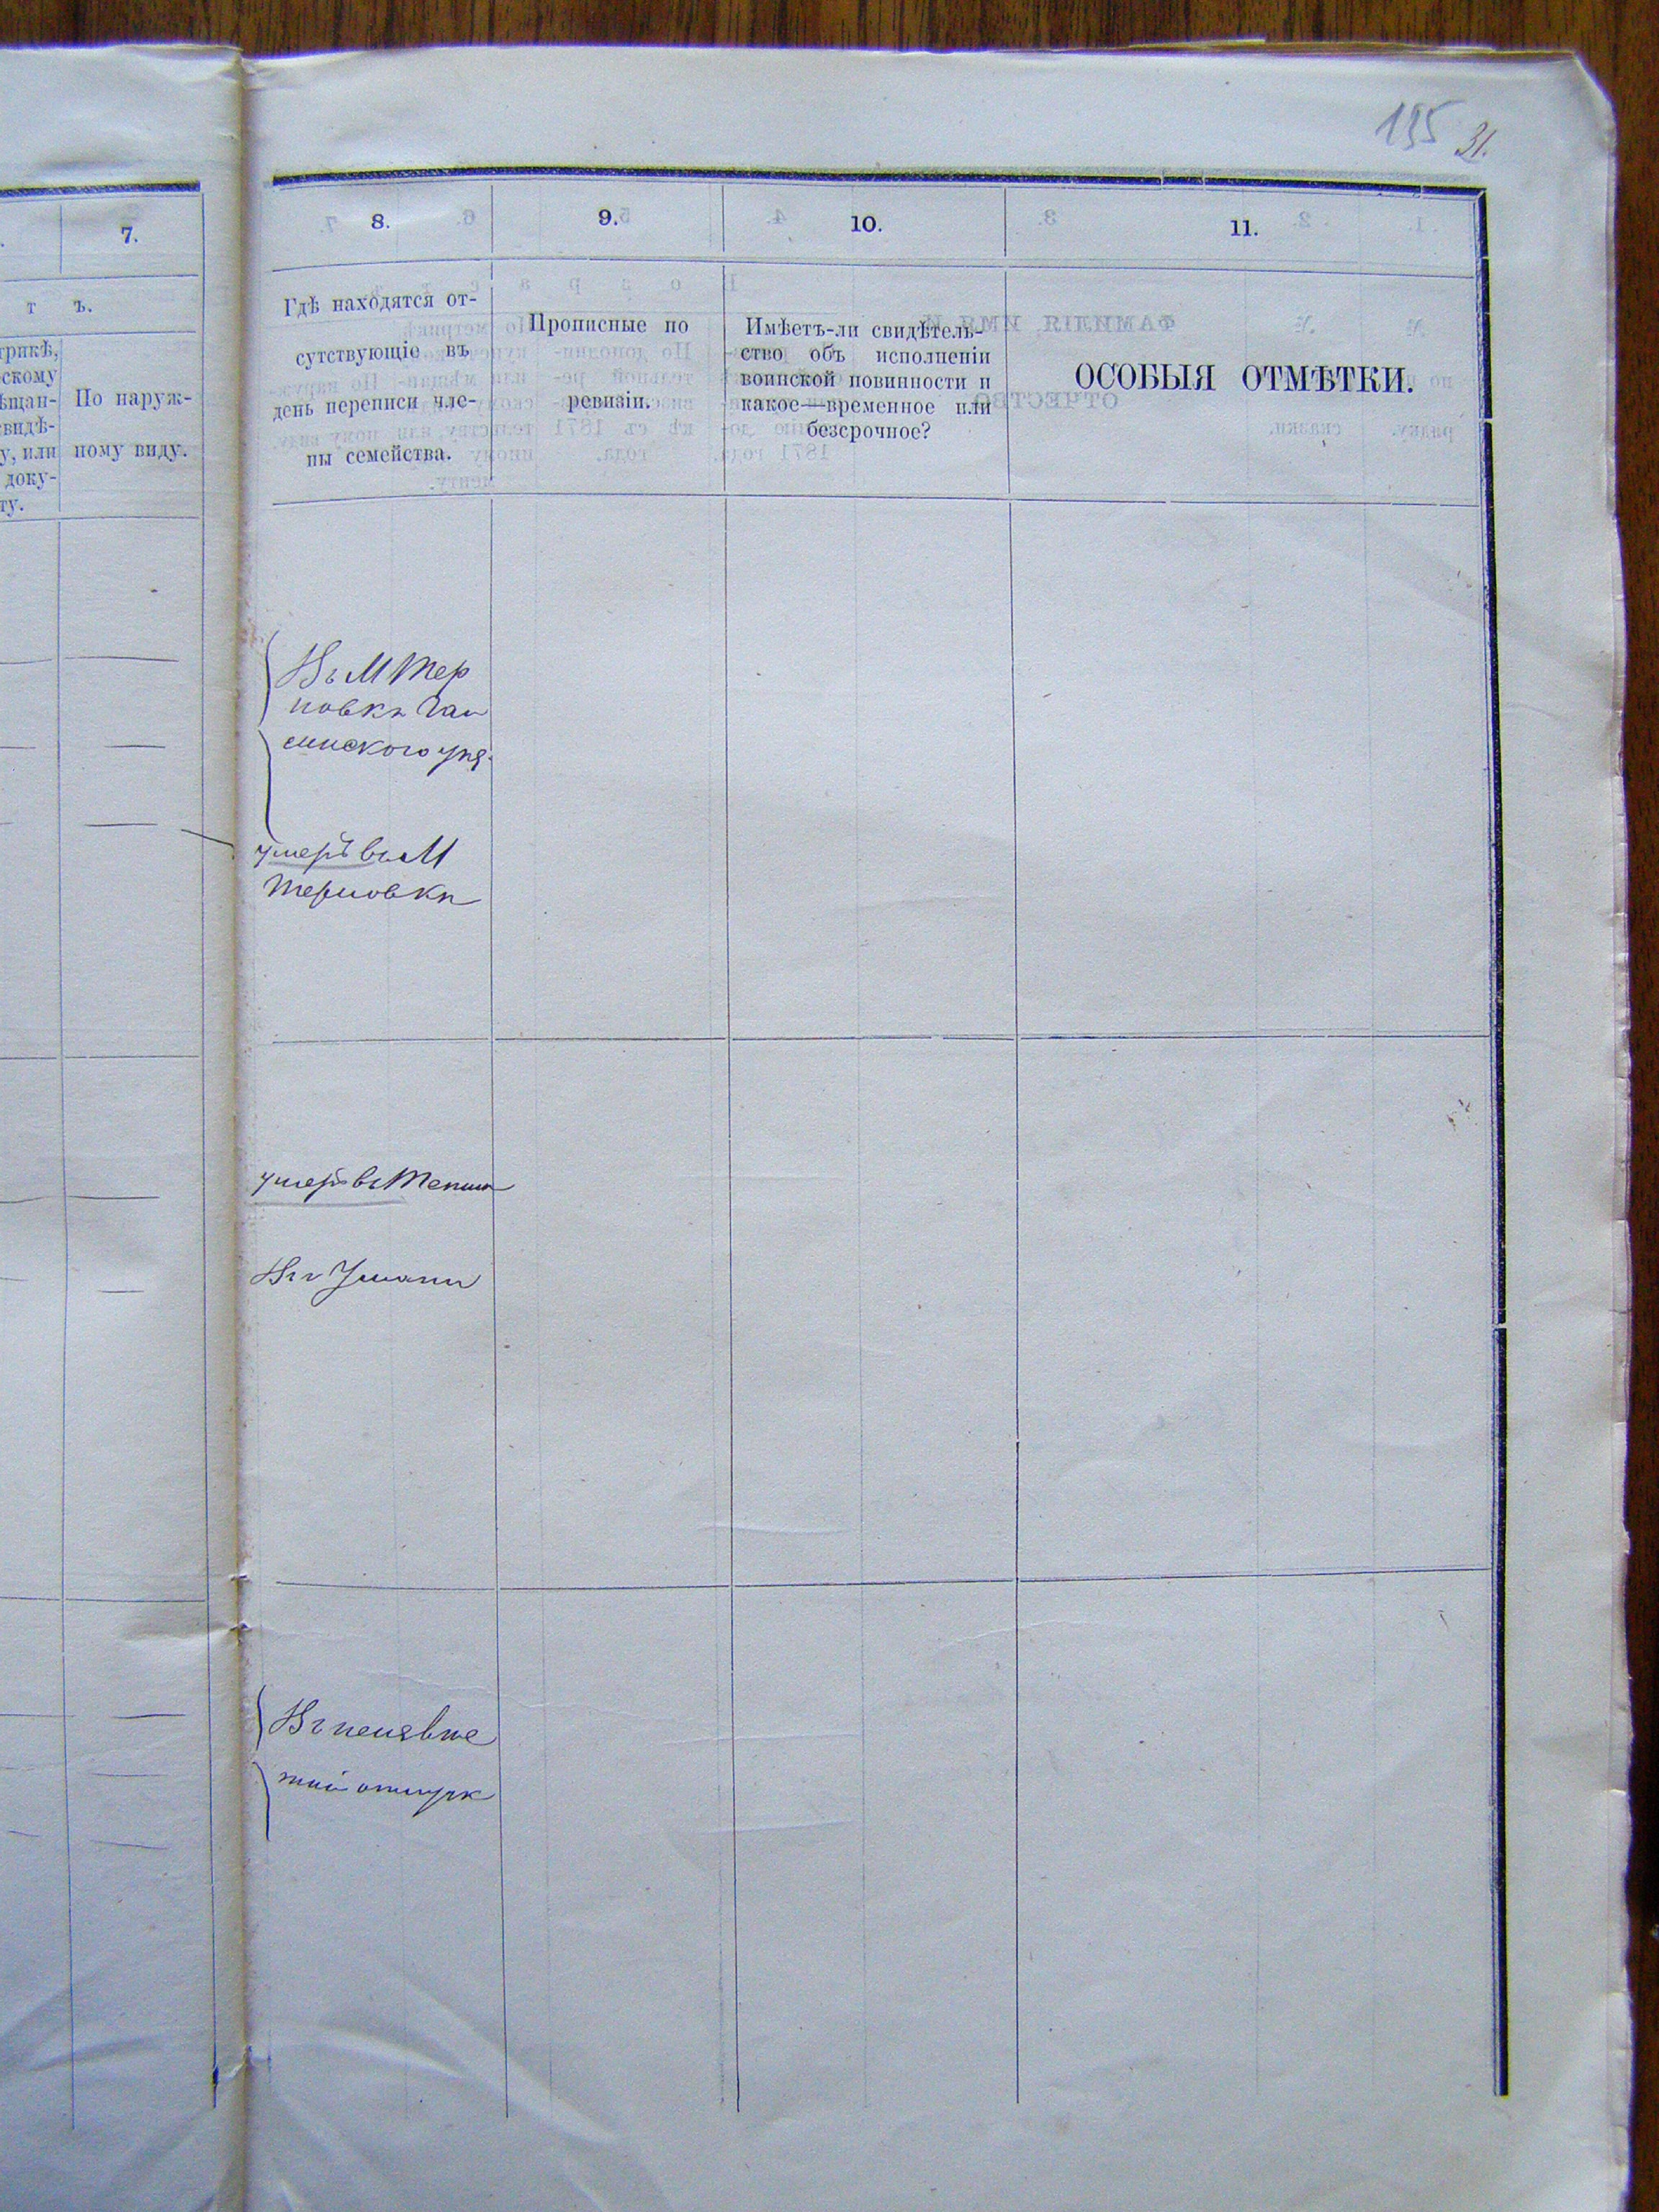 195 31.
7.
8.
9.
10.
11.
т ъ.
трикѣ,
скому
ѣщан-
свидѣ-
у, или
доку-
ту.
По наруж-
ному виду.
Гдѣ находятся от-
сутствующіе въ
день переписи чле-
ны семейства.
Прописные по
ревизіи.
Имѣетъ-ли свидѣтель-
ство объ исполненіи
воинской повинности и
какое—временное или
безсрочное?
ОСОБЫЯ ОТМѢТКИ.
Въ М Тер
новкѣ Гай
синского уѣз.
умеръ въ М
Терновкѣ
умеръ въ
Въ г Умани
Въ неизвѣс